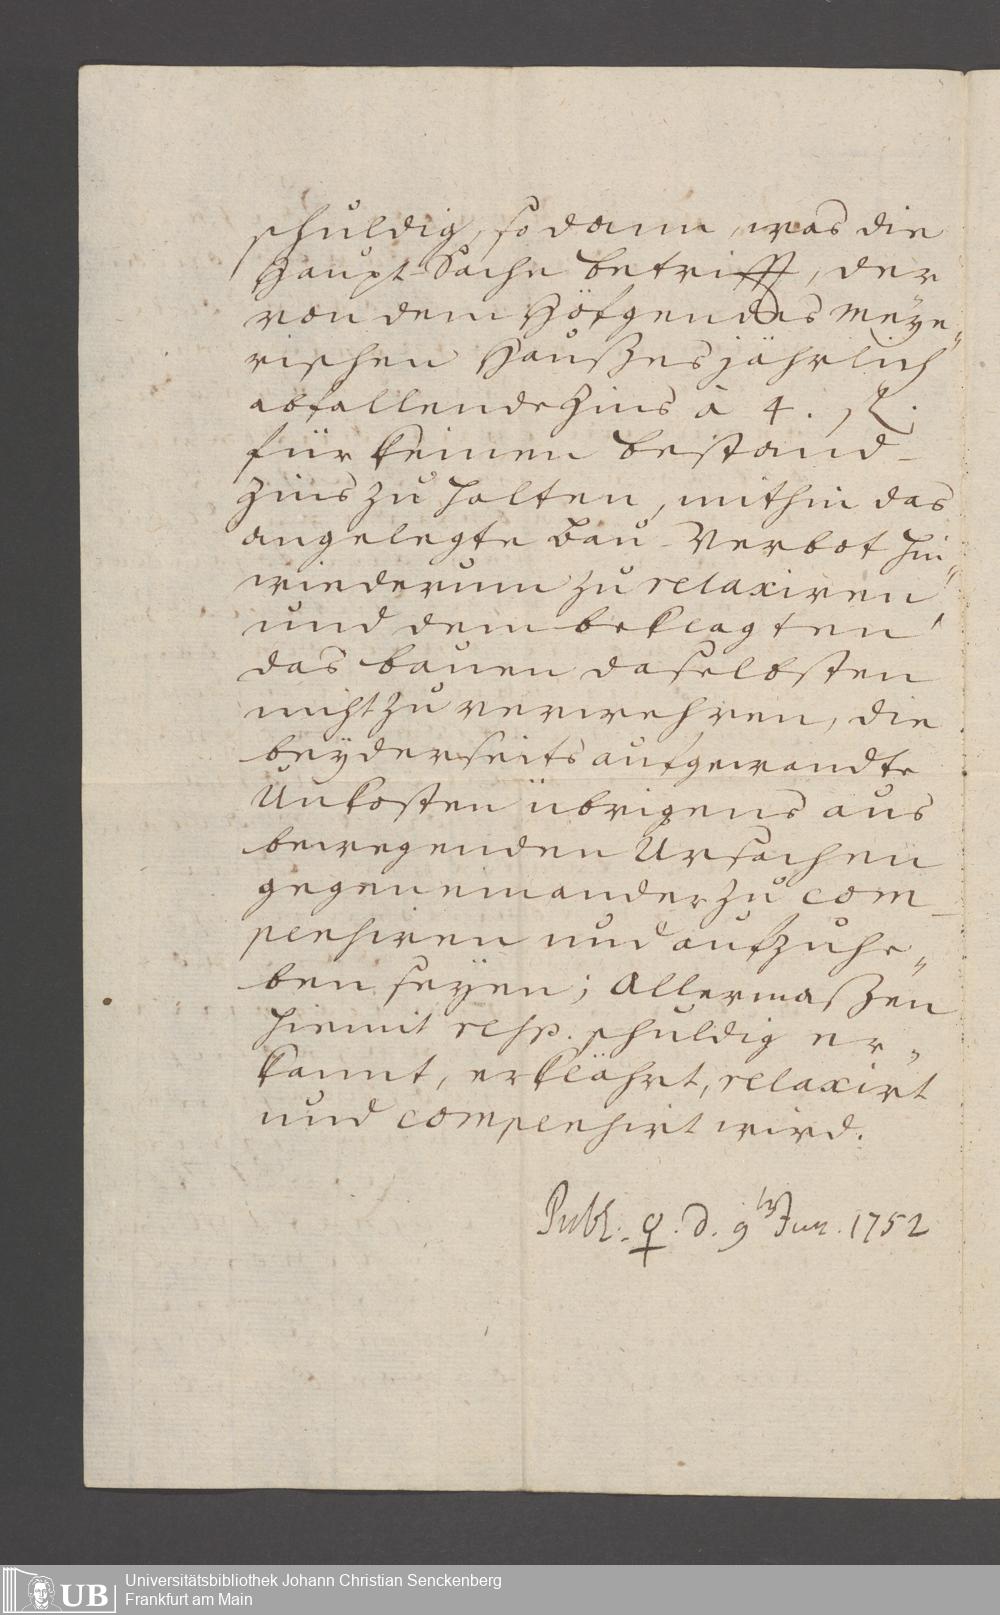 schuldig, so dann, was die
Haupt-Sache betrifft, der
von dem Höfgen des Meye„
rischen Haußes jährlich
abfallende Zins à 4.
für keinen bestand-
zins zu halten, mithin das
angelegte Bau-Verbot hin„
wiederum zu relaxiren
und dem beklagten
das bauen daselbsten
nicht zu verwehren, die
beÿderseits aufgewandte
Unkosten übrigens aus
bewegenden Ursachen
gegen einander zu com-
pensiren und aufzuhe„
ben seÿen; Allermaßen
hiemit resp. schuldig er„
kannt, erklährt, relaxirt
und compensirt wird.
Publ. ♀. d. 9ten Jun. 1752
UB Universitätsbibliothek Johann Christian Senckenberg
Frankfurt am Main